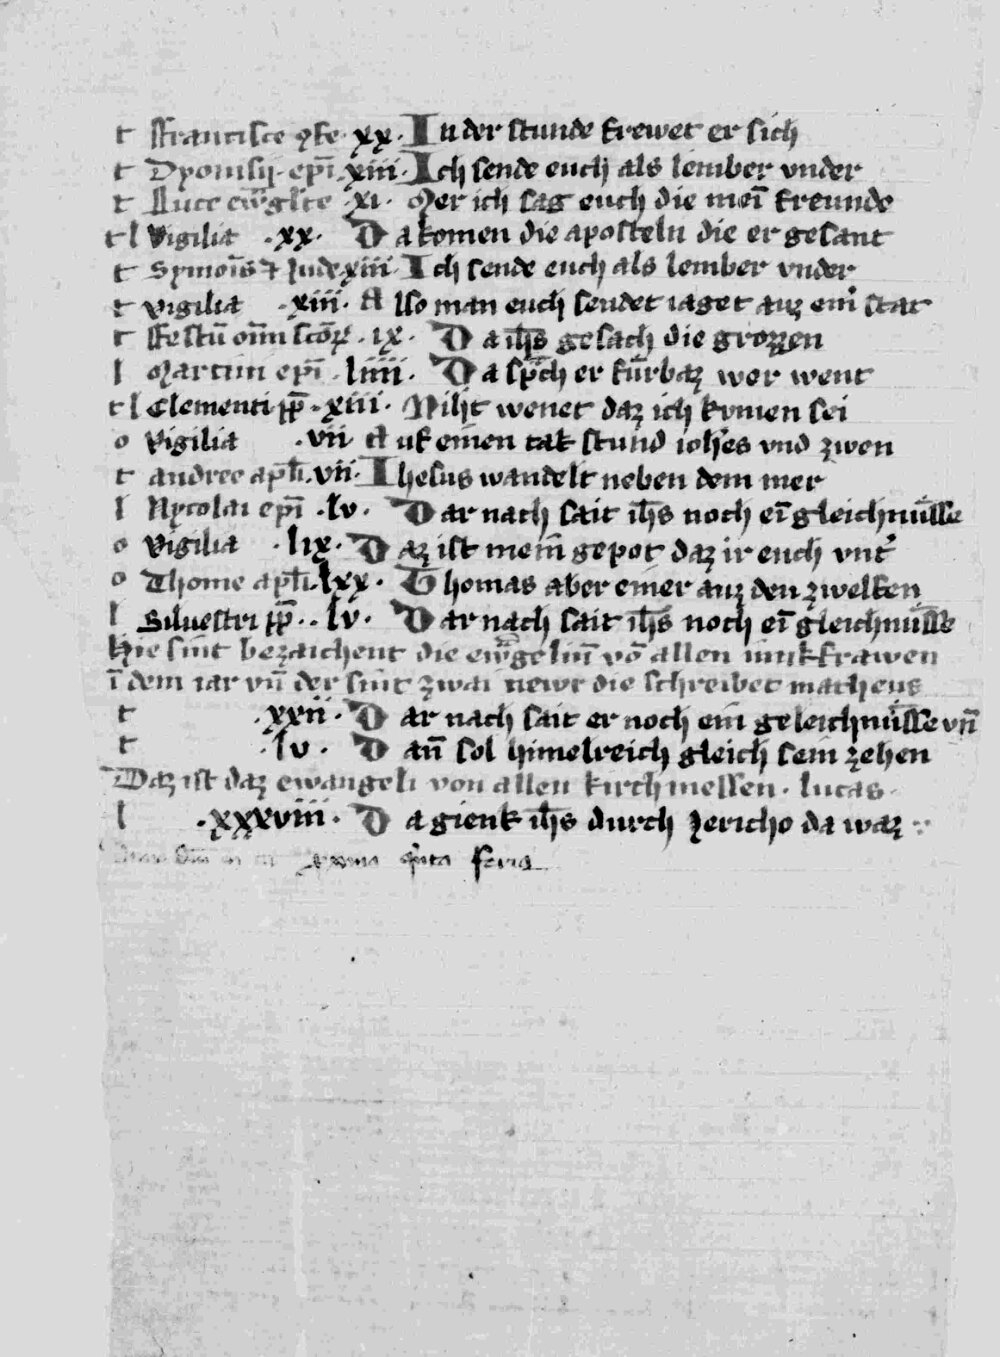 t Francisce ꝯfe · xx · In der stunde frewet er sich
t Dyonisij · ep̄i · xiii · Ich sende euch als lember vnder
t Luce ew̄gl̄te · xi · Mer ich sag euch die mei᷑ freunde
t l Vigilia · xx · Da komen die aposteln die er gesant
t Symonis ⁊ Jude · xiii · Ich sende euch als lember vnder
t vigilia · xiii · Also man euch sendet iaget auz ein᷑ stat
t Festū om̄i scōꝝ · ix · Da ih̄s gesach die grozzen
l Martini ep̄i · liiii · Da sp̄ch er fürbaz wer went
t l Clementi pp̄ · xiii · Niht wenet daz ich kvmen sei
o Vigilia · vii · Auf einen tak stund ioh̄es vnd zwen
t andree apl̄i · vii · Ihesus wandelt neben dem mer
l Nycolai ep̄i · lv · Dar nach sait ih̄s noch ei̅ gleichnüsse
o Vigilia · lix · Daz ist mein̄ gepot daz ir euch vnt᷑
o Thome apl̄i · lxx · Thomas aber einer auz den zwelfen
l Siluestri pp̄ · lv · Dar nach sait ih̄s noch ei̅ gleichnüsse
Hie sint bezaichent die ew̄gelin̄ vō allen iunkfrawen
ī dem iar vn̄ der sint zwai newr die schreibet matheus
t · xxii · Dar nach sait er noch ein geleichnüsse vn̄
t · lv · Dan̄ sol himelreich gleich sein zehen
Daz ist daz ewangeli von allen kirchmessen · lucas ·
l · xxxviii · Da gienk ih̄s durch Jericho da waz
q̄nta feria